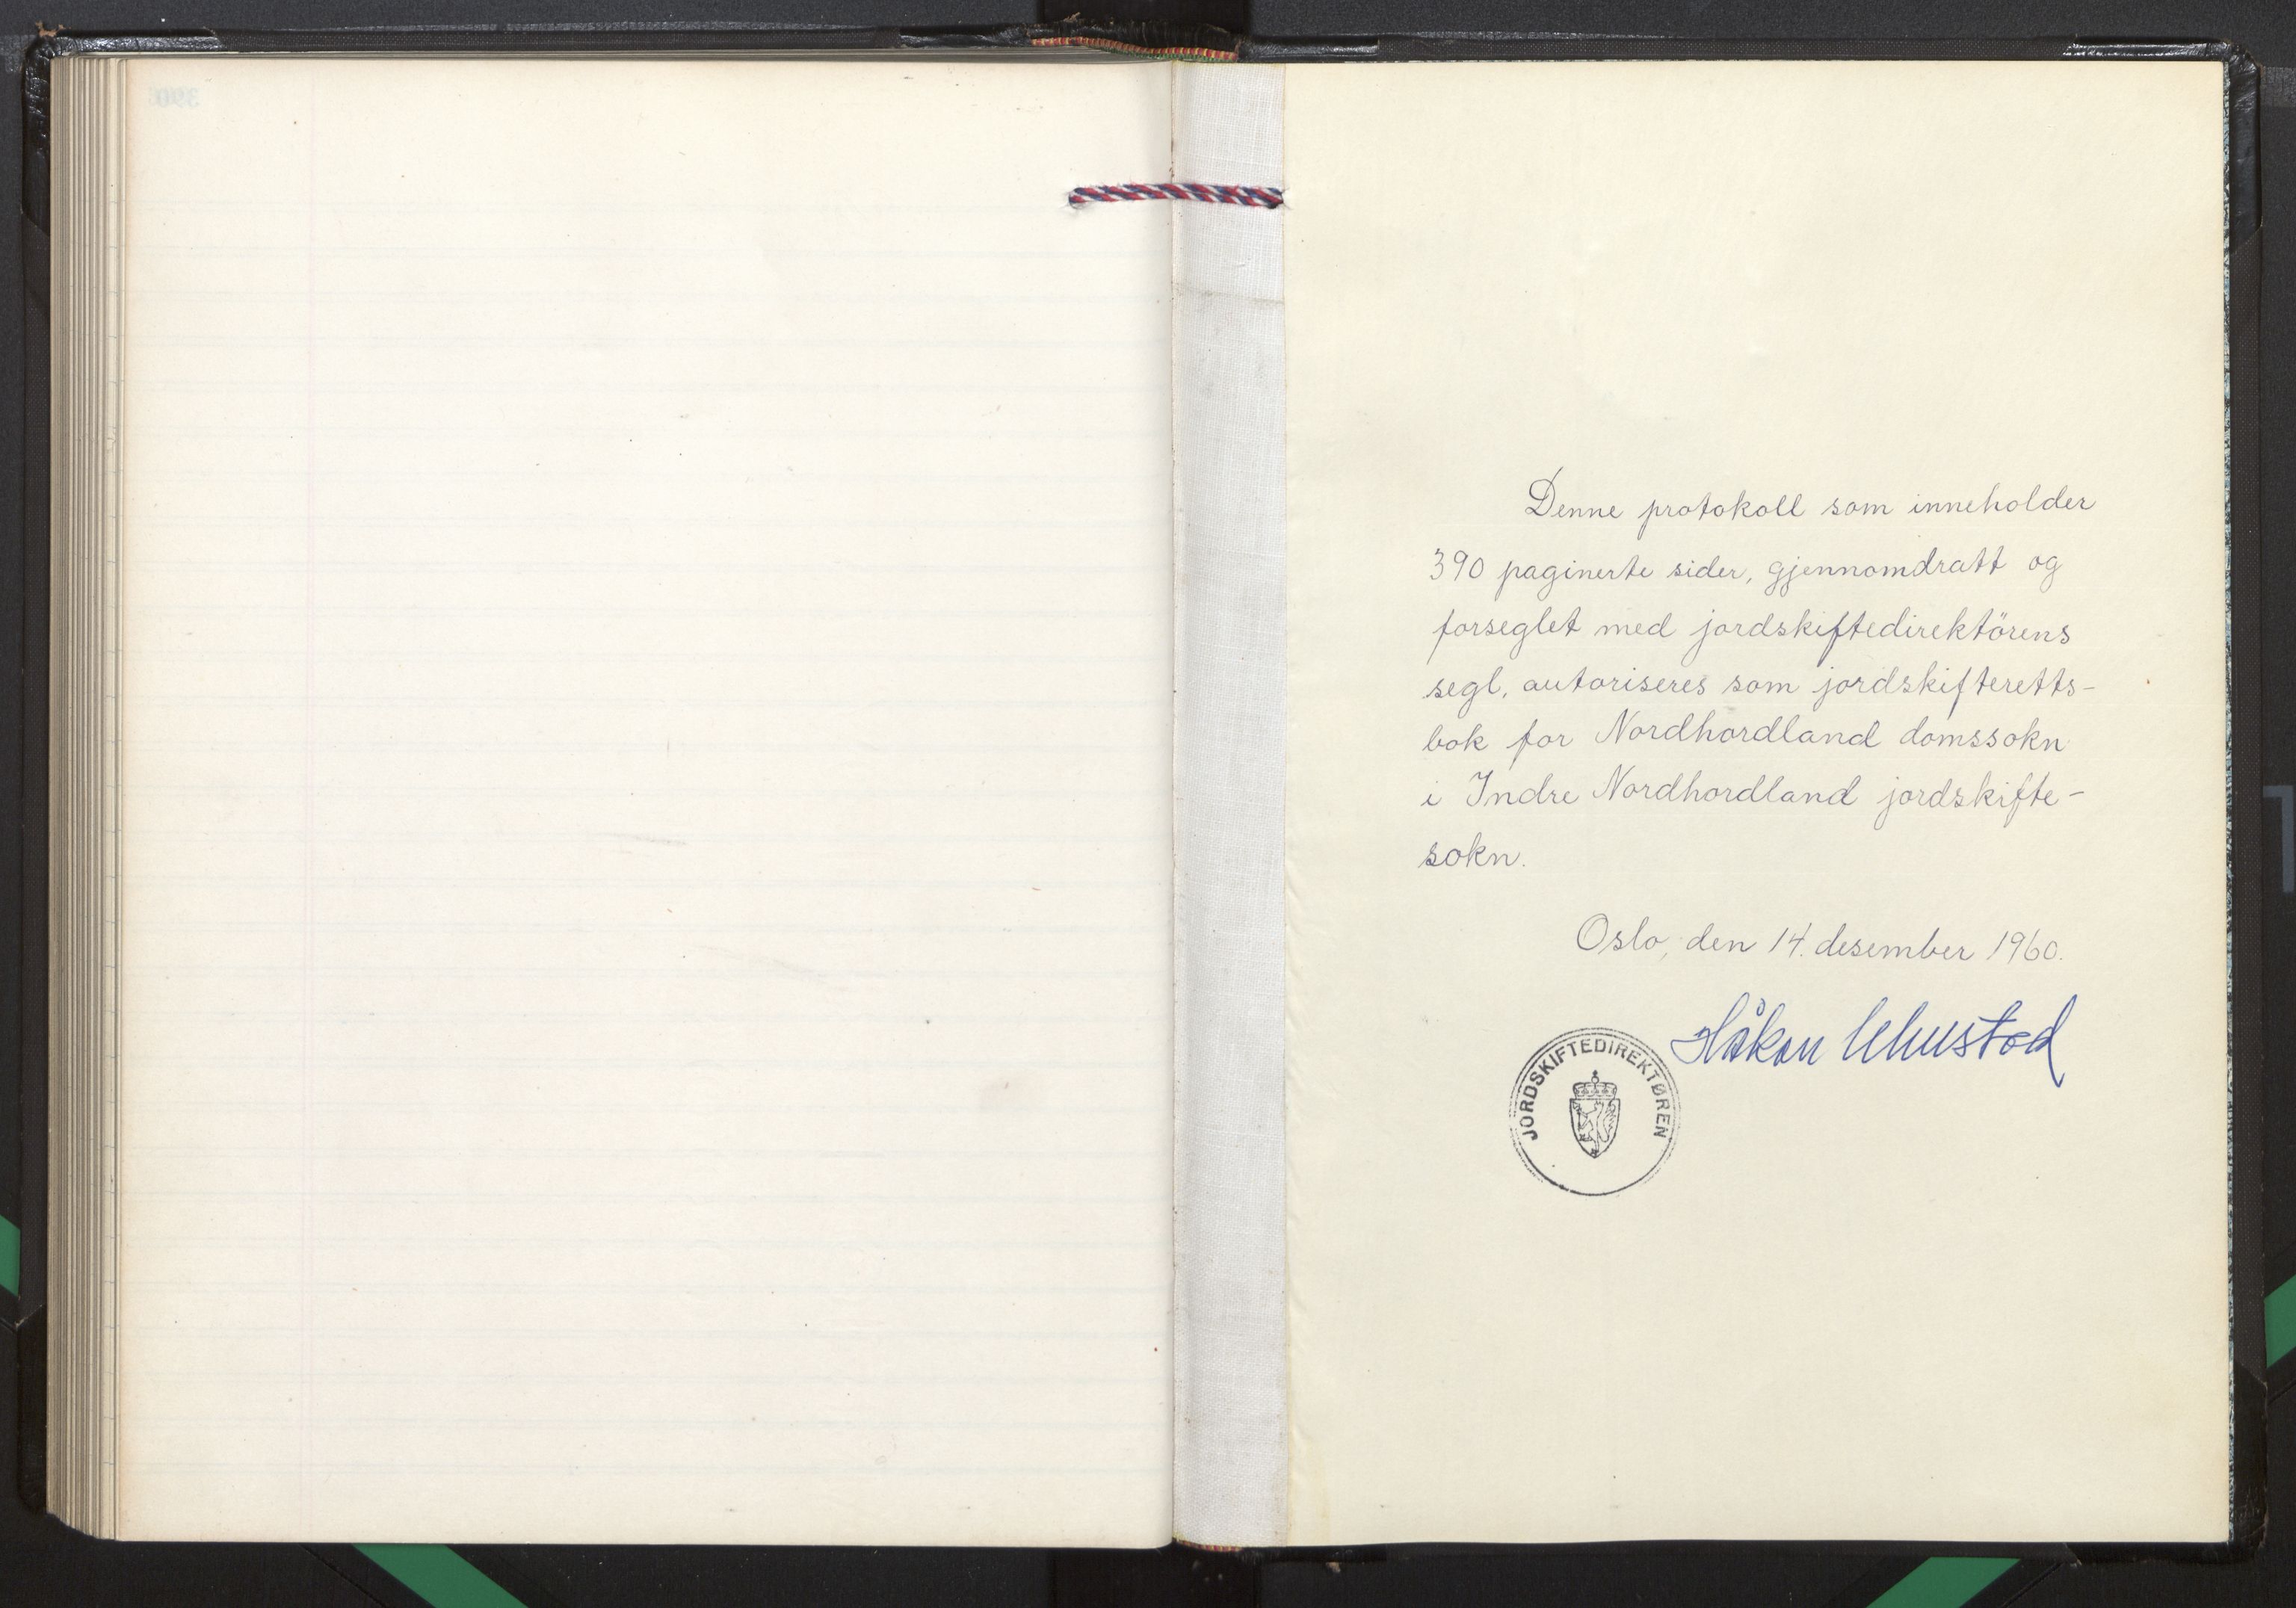 390
Denne protokoll som inneholder
390 paginerte sider, gjennomdratt og
forseglet med jordskiftedirektörens
segl, autoriseres som jordskifteretts-
bok for Nordhordland domssokn
i Indre Nordhordland jordskifte-
sokn.
Oslo, den 14. desember 1960.
Håkon
JORDSKIFTEDIREKTØREN